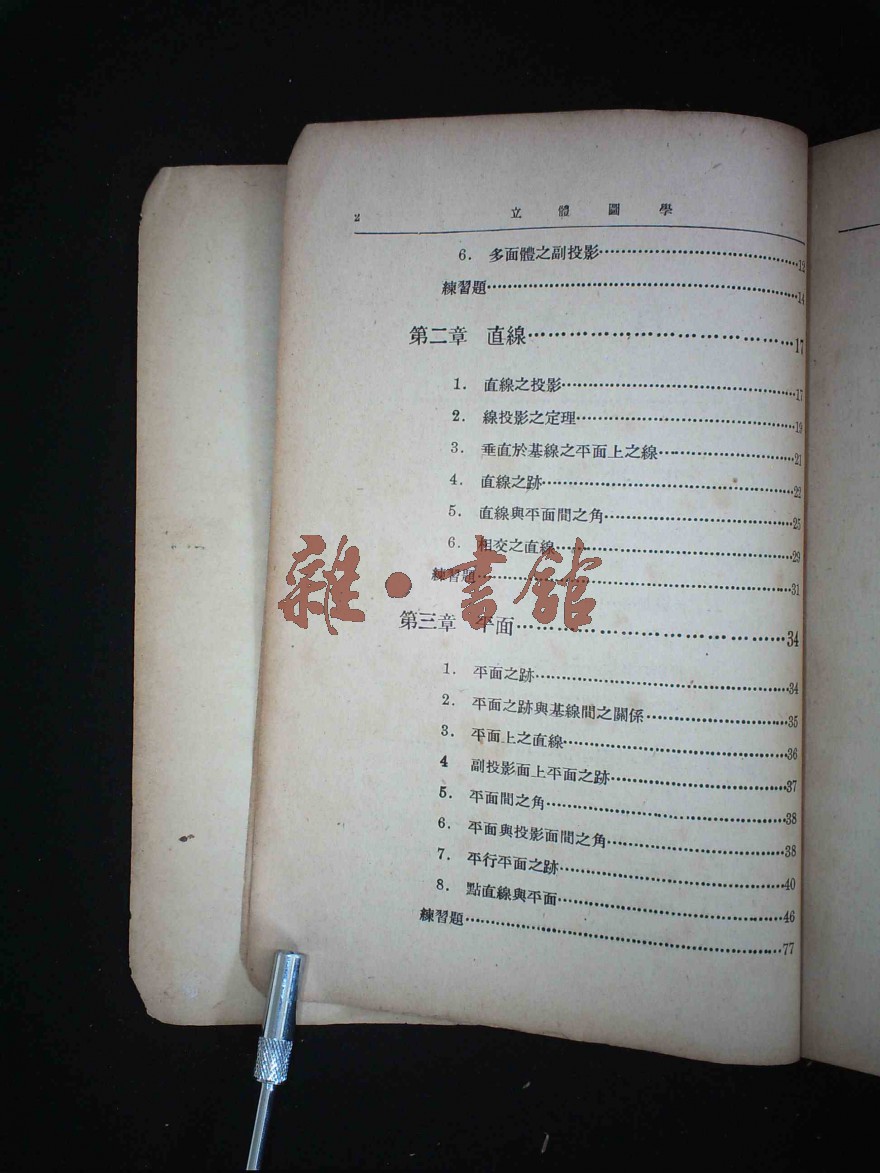 2 立體圖學
6. 多面體之副投影……………………12
練習題……………………14
第二章 直線……………………17
1. 直線之投影……………………17
2. 線投影之定理……………………19
3. 垂直於基線之平面上之線……………………21
4. 直線之跡……………………22
5. 直線與平面間之角……………………25
6. 相交之直線……………………29
練習題……………………31
雜·書館
第三章 平面……………………34
1. 平面之跡……………………34
2. 平面之跡與基線間之關係……………………35
3. 平面上之直線……………………36
4 副投影面上平面之跡……………………37
5. 平面間之角……………………38
6. 平面與投影面間之角……………………38
7. 平行平面之跡……………………40
8. 點直線與平面……………………46
練習題……………………77